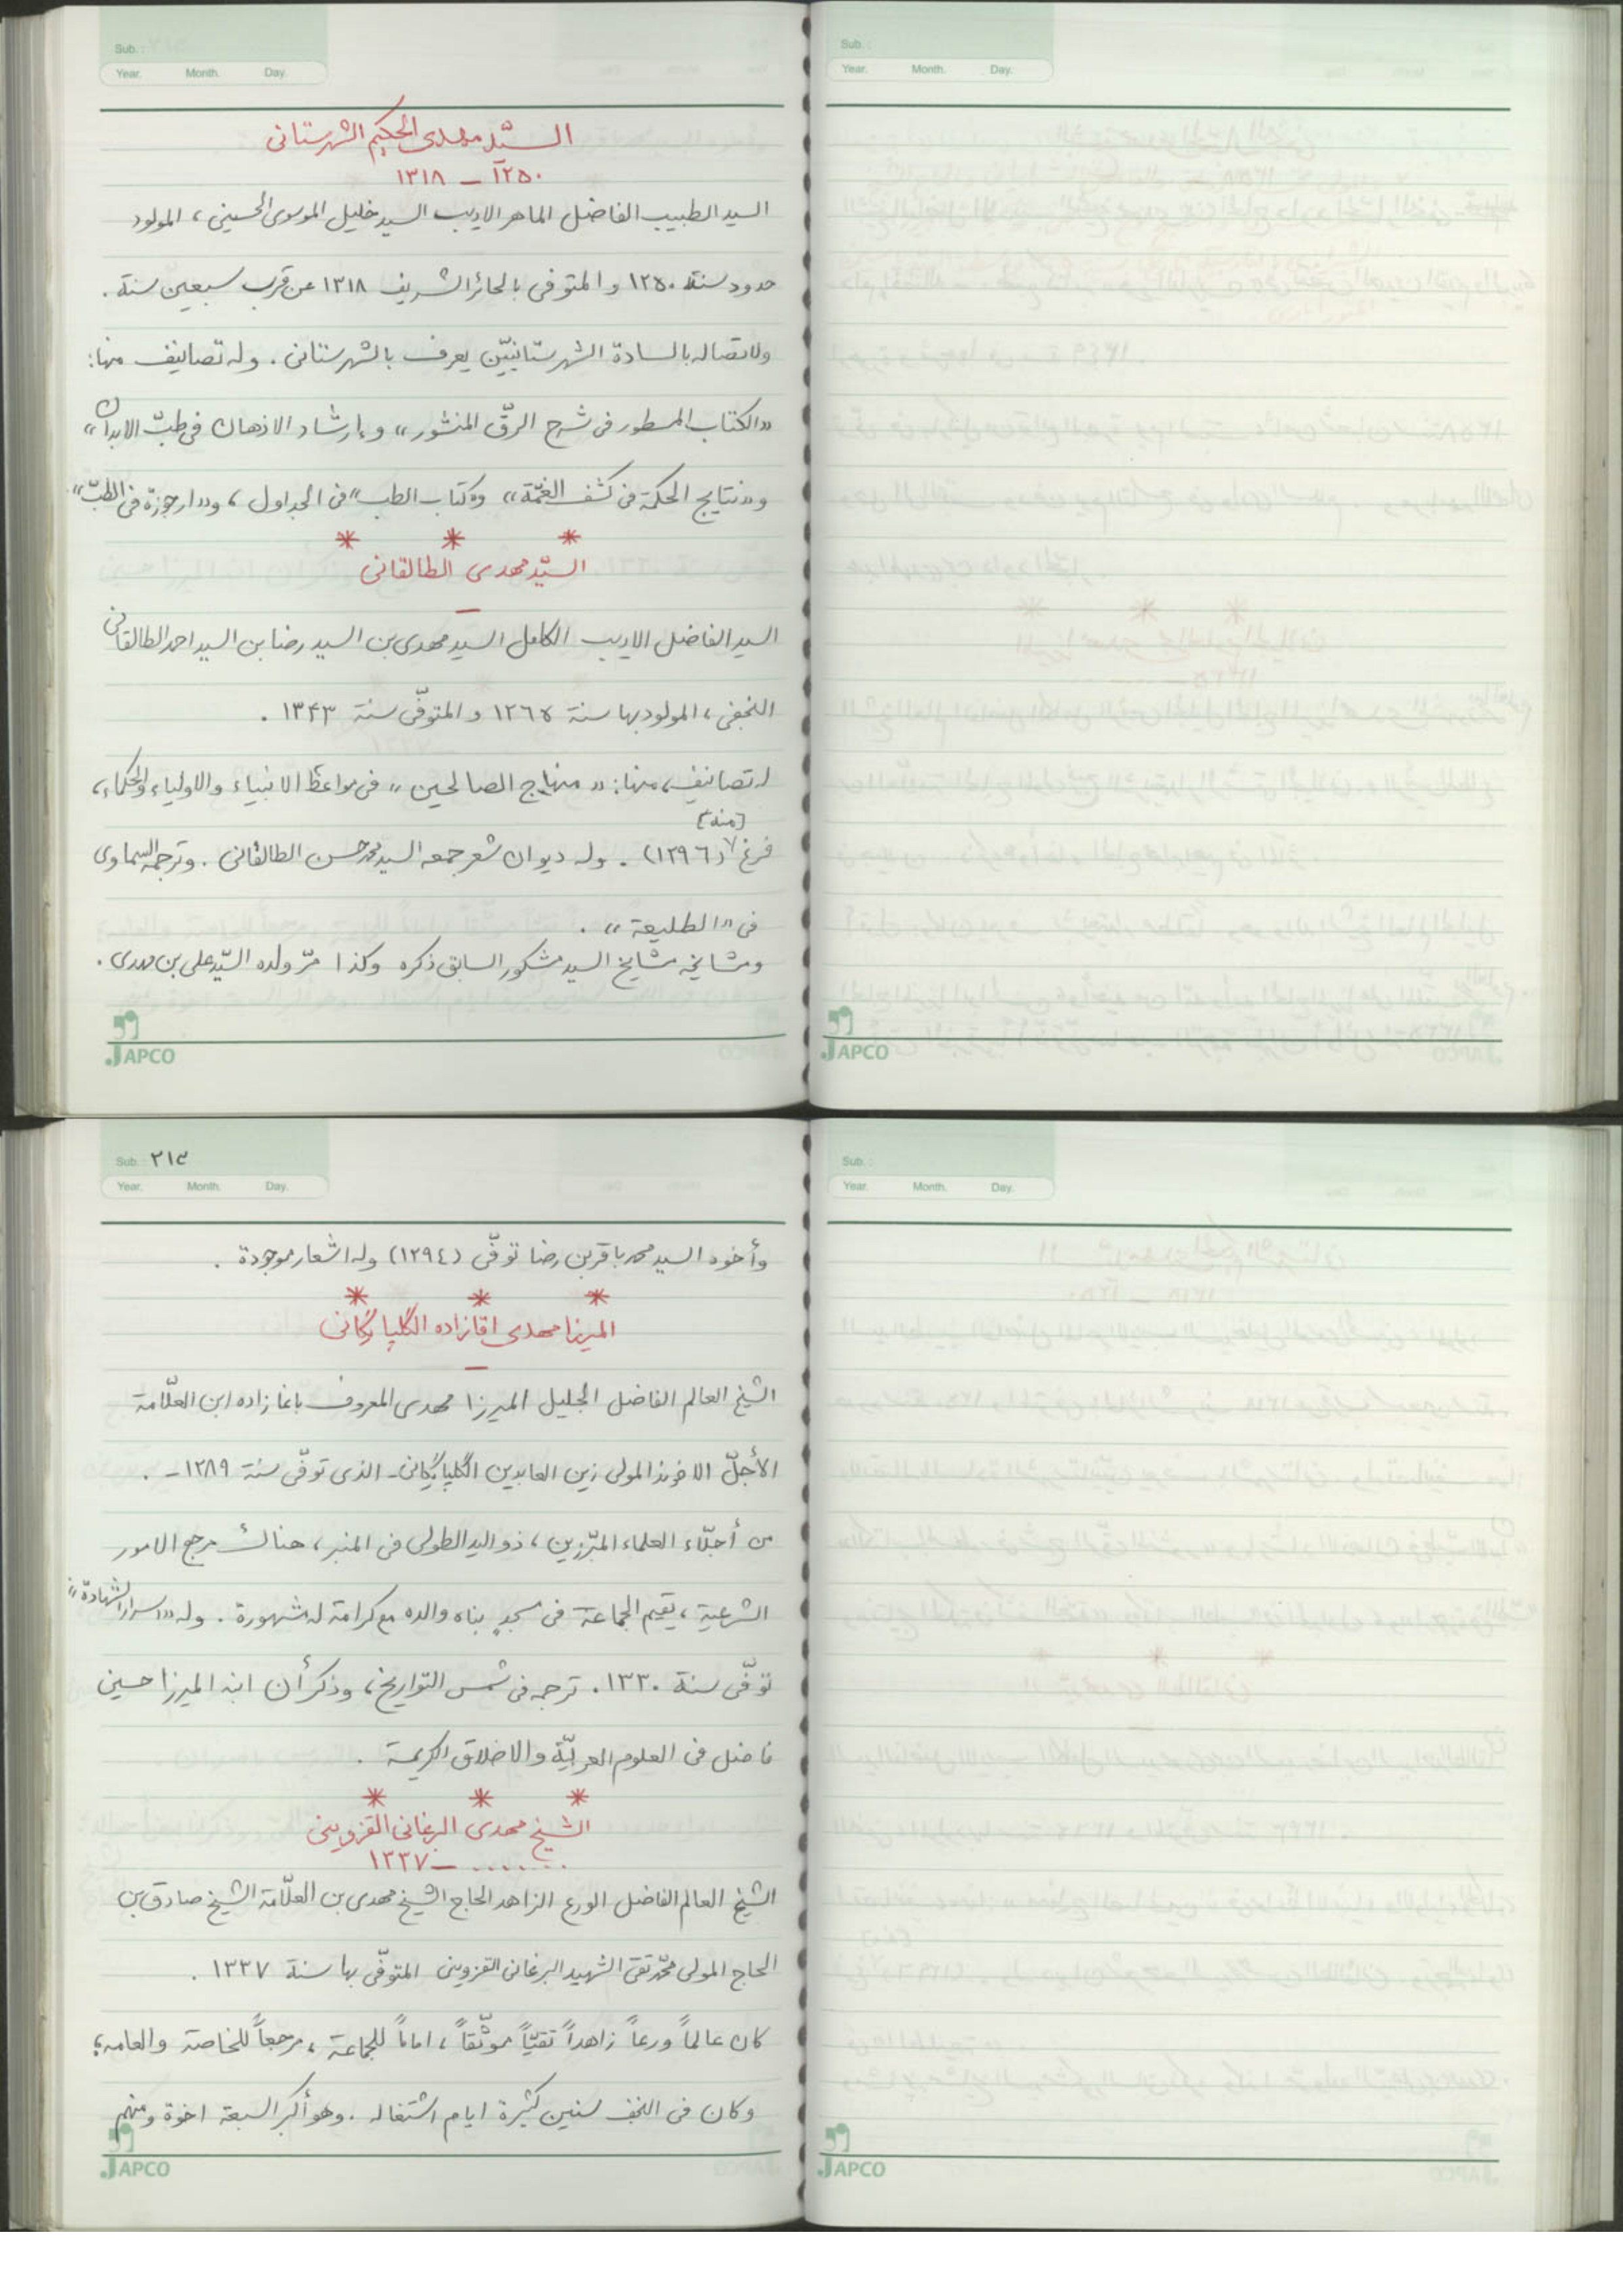 Sub.:
Year. Month. Day.
السيّد مهدى الحكيم الشهرستانى
١٢٥٠ – ١٣١٨
السيد الطبيب الفاضل الماهر الاديب السيد خليل الموسوى الحسينى ، المولود
حدود سنة ١٢٥٠ و المتوفى بالحائر الشريف ١٣١٨ عن قرب سبعين سنة .
ولاتصاله بالسادة الشهرستانيّين يعرف بالشهرستانى . وله تصانيف منها :
«الكتاب المسطور فى شرح الرقّ المنشور» و«ارشاد الاذهان فى طبّ الابدان»
و«نتايج الحكمة فى كشف الغمّة» و«كتاب الطب» فى الجداول ، و«ارجوزة فى الطبّ».
* * *
السيّد مهدى الطالقانى
–
السيد الفاضل الاديب الكامل السيد مهدى بن السيد رضا بن السيد احمد الطالقانى
النجفى ، المولود بها سنة ١٢٦٥ و المتوفّى سنة ١٣٤٣ .
له تصانيف ، منها : « منهاج الصالحين » فى مواعظ الانبياء والاولياء والحكماء ،
[منه]
فرغ (١٢٩٦) . وله ديوان شعر جمعه السيد محمد حسن الطالقانى . وترجمه السماوى
فى «الطليعة» .
ومشايخه مشايخ السيد مشكور السابق ذكره وكذا مرّ ولده السيّد على بن مهدى .
JAPCO
Sub.:
Year. Month. Day.
JAPCO
Sub.: ٢١٣
Year. Month. Day.
وأخوه السيد محمد باقر بن رضا توفّى (١٢٩٤) وله اشعار موجودة .
* * *
الميرزا مهدى اقازاده الگلپايگانى
–
الشيخ العالم الفاضل الجليل الميرزا مهدى المعروف باغا زاده ابن العلّامة
الأجلّ الاخوند المولى زين العابدين الگلپايگانى - الذى توفّى سنة ١٢٨٩ - .
من أجلّاء العلماء المبرّزين ، ذو اليد الطولى فى المنبر ، هناك مرجع الامور
الشرعية ، يقيم الجماعة فى مسجدٍ بناه والده مع كرامة له مشهورة . وله «اسرار الشهادة»
توفّى سنة ١٣٣٠ . ترجمه فى شمس التواريخ ، وذكر أن ابنه الميرزا حسين
فاضل فى العلوم العربيّة والاخلاق الكريمة .
* * *
الشيخ مهدى البرغانى القزوينى
....... – ١٣٣٧
الشيخ العالم الفاضل الورع الزاهد الحاج الشيخ مهدى بن العلّامة الشيخ صادق بن
الحاج المولى محمّد تقى الشهيد البرغانى القزوينى المتوفّى بها سنة ١٣٣٧ .
كان عالماً ورعاً زاهداً تقيّاً موثّقاً ، اماماً للجماعة ، مرجعاً للخاصة والعامه ؛
وكان فى النجف سنين كثيرة ايام اشتغاله . وهو أكبر السبعة اخوة ومنهم
JAPCO
Sub.:
Year. Month. Day.
JAPCO